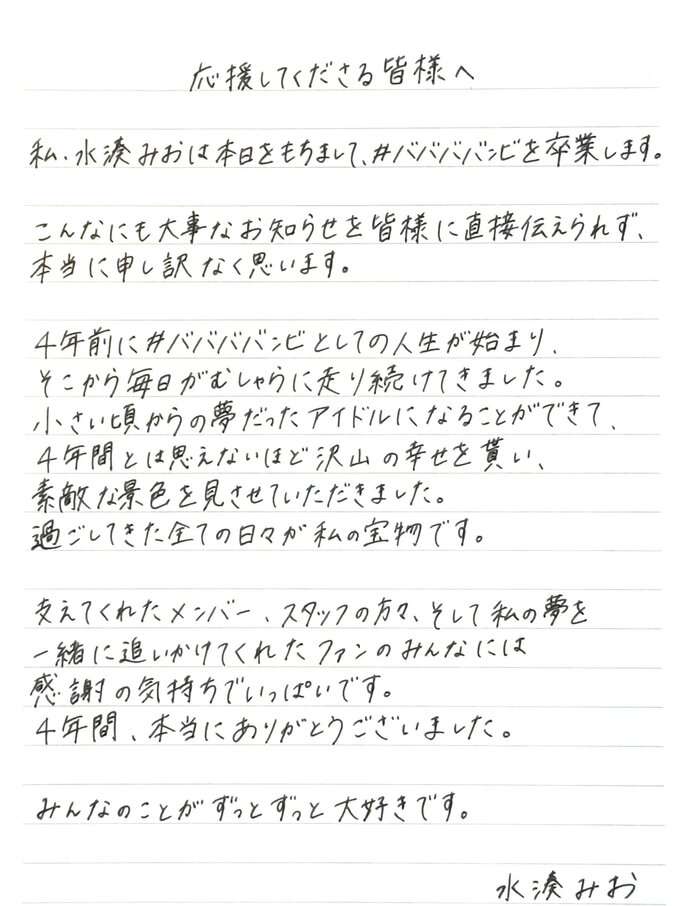 応援してくださる皆様へ
私、水湊みおは本日をもちまして、#ババババンビを卒業します。
こんなにも大事なお知らせを皆様に直接伝えられず、
本当に申し訳なく思います。
4年前に#ババババンビとしての人生が始まり、
そこから毎日がむしゃらに走り続けてきました。
小さい頃からの夢だったアイドルになることができて、
4年間とは思えないほど沢山の幸せを貰い、
素敵な景色を見させていただきました。
過ごしてきた全ての日々が私の宝物です。
支えてくれたメンバー、スタッフの方々、そして私の夢を
一緒に追いかけてくれたファンのみんなには
感謝の気持ちでいっぱいです。
4年間、本当にありがとうございました。
みんなのことがずっとずっと大好きです。
水湊みお